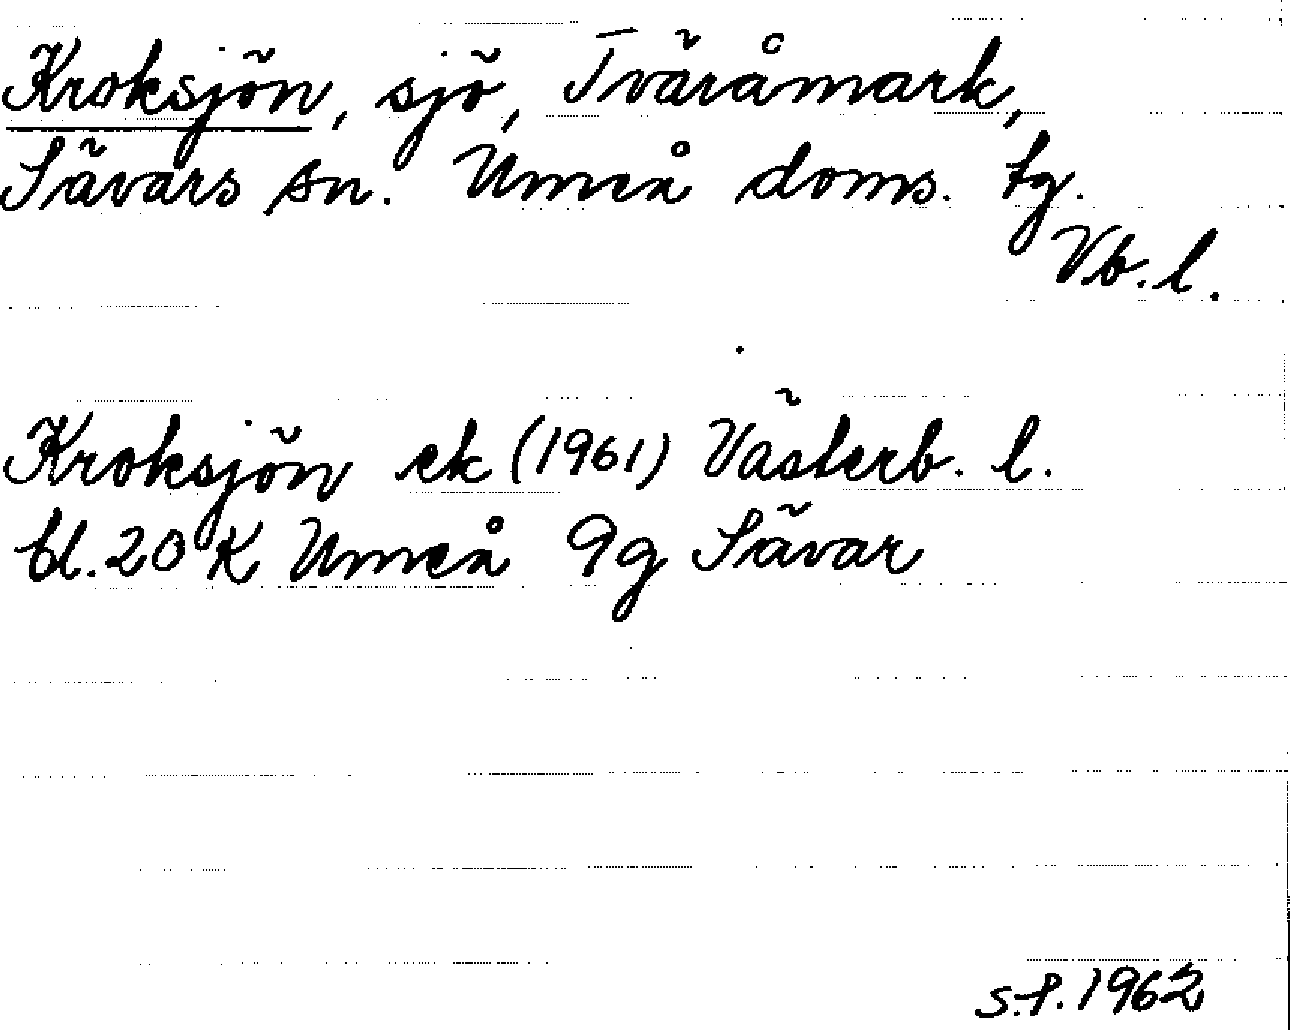 Kroksjön, sjö, Tväråmark,
Sävars sn. Umeå doms. tg.
Vb.l.
Kroksjön ek (1961) Västerb. l.
bl. 20 K Umeå 9g Sävar
S.P. 1962